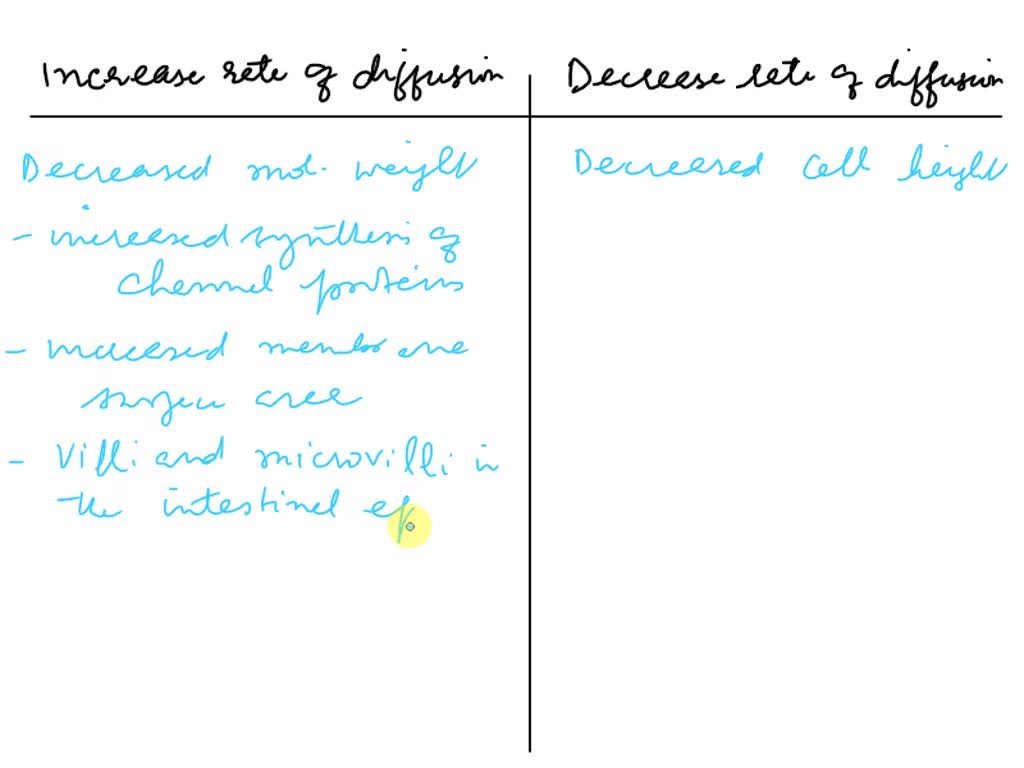 Increase rate of diffusion
Decrease rate of diffusion
Decreased mol. weight
- increased synthesis of
channel proteins
- increased membrane
surface area
- Villi and microvilli in
the intestinal ep
Decreased cell height